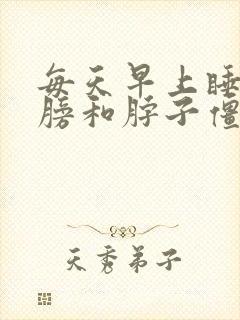 每天早上睡
膀和脖子僵
天秀弟子